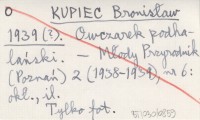 O KUPIEC Bronisław
1939 (?). Owczarek podha-
lański. — Młody Przyrodnik
(Poznań) 2 (1938-1939), nr 6:
okl., il.
Tylko fot.